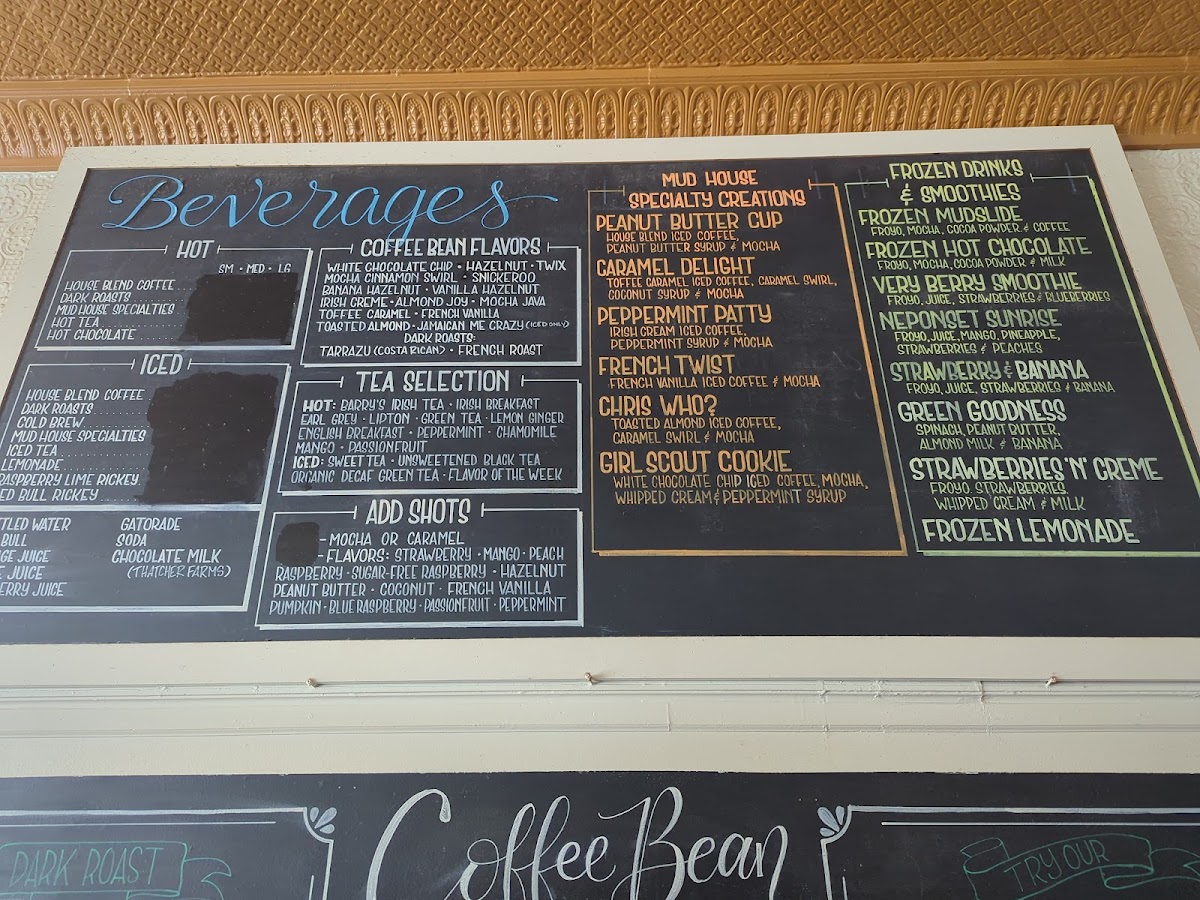 Beverages
HOT
SM • MED • LG
HOUSE BLEND COFFEE
DARK ROASTS
MUD HOUSE SPECIALTIES
HOT TEA
HOT CHOCOLATE
ICED
HOUSE BLEND COFFEE
DARK ROASTS
COLD BREW
MUD HOUSE SPECIALTIES
ICED TEA
LEMONADE
RASPBERRY LIME RICKEY
BULL RICKEY
WATER
BULL
JUICE
JUICE
JUICE
GATORADE
SODA
CHOCOLATE MILK
(THATCHER FARMS)
COFFEE BEAN FLAVORS
WHITE CHOCOLATE CHIP • HAZELNUT • TWIX
MOCHA CINNAMON SWIRL • SNICKEROO
BANANA HAZELNUT • VANILLA HAZELNUT
IRISH CREME • ALMOND JOY • MOCHA JAVA
TOFFEE CARAMEL • FRENCH VANILLA
TOASTED ALMOND • JAMAICAN ME CRAZY (ICED ONLY)
DARK ROASTS:
TARRAZU (COSTA RICAN) • FRENCH ROAST
TEA SELECTION
HOT: BARRY'S IRISH TEA • IRISH BREAKFAST
EARL GREY • LIPTON • GREEN TEA • LEMON GINGER
ENGLISH BREAKFAST • PEPPERMINT • CHAMOMILE
MANGO • PASSIONFRUIT
ICED: SWEET TEA • UNSWEETENED BLACK TEA
ORGANIC DECAF GREEN TEA • FLAVOR OF THE WEEK
ADD SHOTS
- MOCHA OR CARAMEL
- FLAVORS: STRAWBERRY • MANGO • PEACH
RASPBERRY • SUGAR-FREE RASPBERRY • HAZELNUT
PEANUT BUTTER • COCONUT • FRENCH VANILLA
PUMPKIN • BLUE RASPBERRY • PASSIONFRUIT • PEPPERMINT
MUD HOUSE
SPECIALTY CREATIONS
PEANUT BUTTER CUP
HOUSE BLEND ICED COFFEE,
PEANUT BUTTER SYRUP & MOCHA
CARAMEL DELIGHT
TOFFEE CARAMEL ICED COFFEE, CARAMEL SWIRL,
COCONUT SYRUP & MOCHA
PEPPERMINT PATTY
IRISH CREAM ICED COFFEE,
PEPPERMINT SYRUP & MOCHA
FRENCH TWIST
FRENCH VANILLA ICED COFFEE & MOCHA
CHRIS WHO?
TOASTED ALMOND ICED COFFEE,
CARAMEL SWIRL & MOCHA
GIRL SCOUT COOKIE
WHITE CHOCOLATE CHIP ICED COFFEE, MOCHA,
WHIPPED CREAM & PEPPERMINT SYRUP
FROZEN DRINKS
& SMOOTHIES
FROZEN MUDSLIDE
FROYO, MOCHA, COCOA POWDER & COFFEE
FROZEN HOT CHOCOLATE
FROYO, MOCHA, COCOA POWDER & MILK
VERY BERRY SMOOTHIE
FROYO, JUICE, STRAWBERRIES & BLUEBERRIES
NEPONSET SUNRISE
FROYO, JUICE, MANGO, PINEAPPLE,
STRAWBERRIES & PEACHES
STRAWBERRY & BANANA
FROYO, JUICE, STRAWBERRIES & BANANA
GREEN GOODNESS
SPINACH, PEANUT BUTTER,
ALMOND MILK & BANANA
STRAWBERRIES 'N' CREME
FROYO, STRAWBERRIES,
WHIPPED CREAM & MILK
FROZEN LEMONADE
Coffee Bean
DARK ROAST
TRY OUR